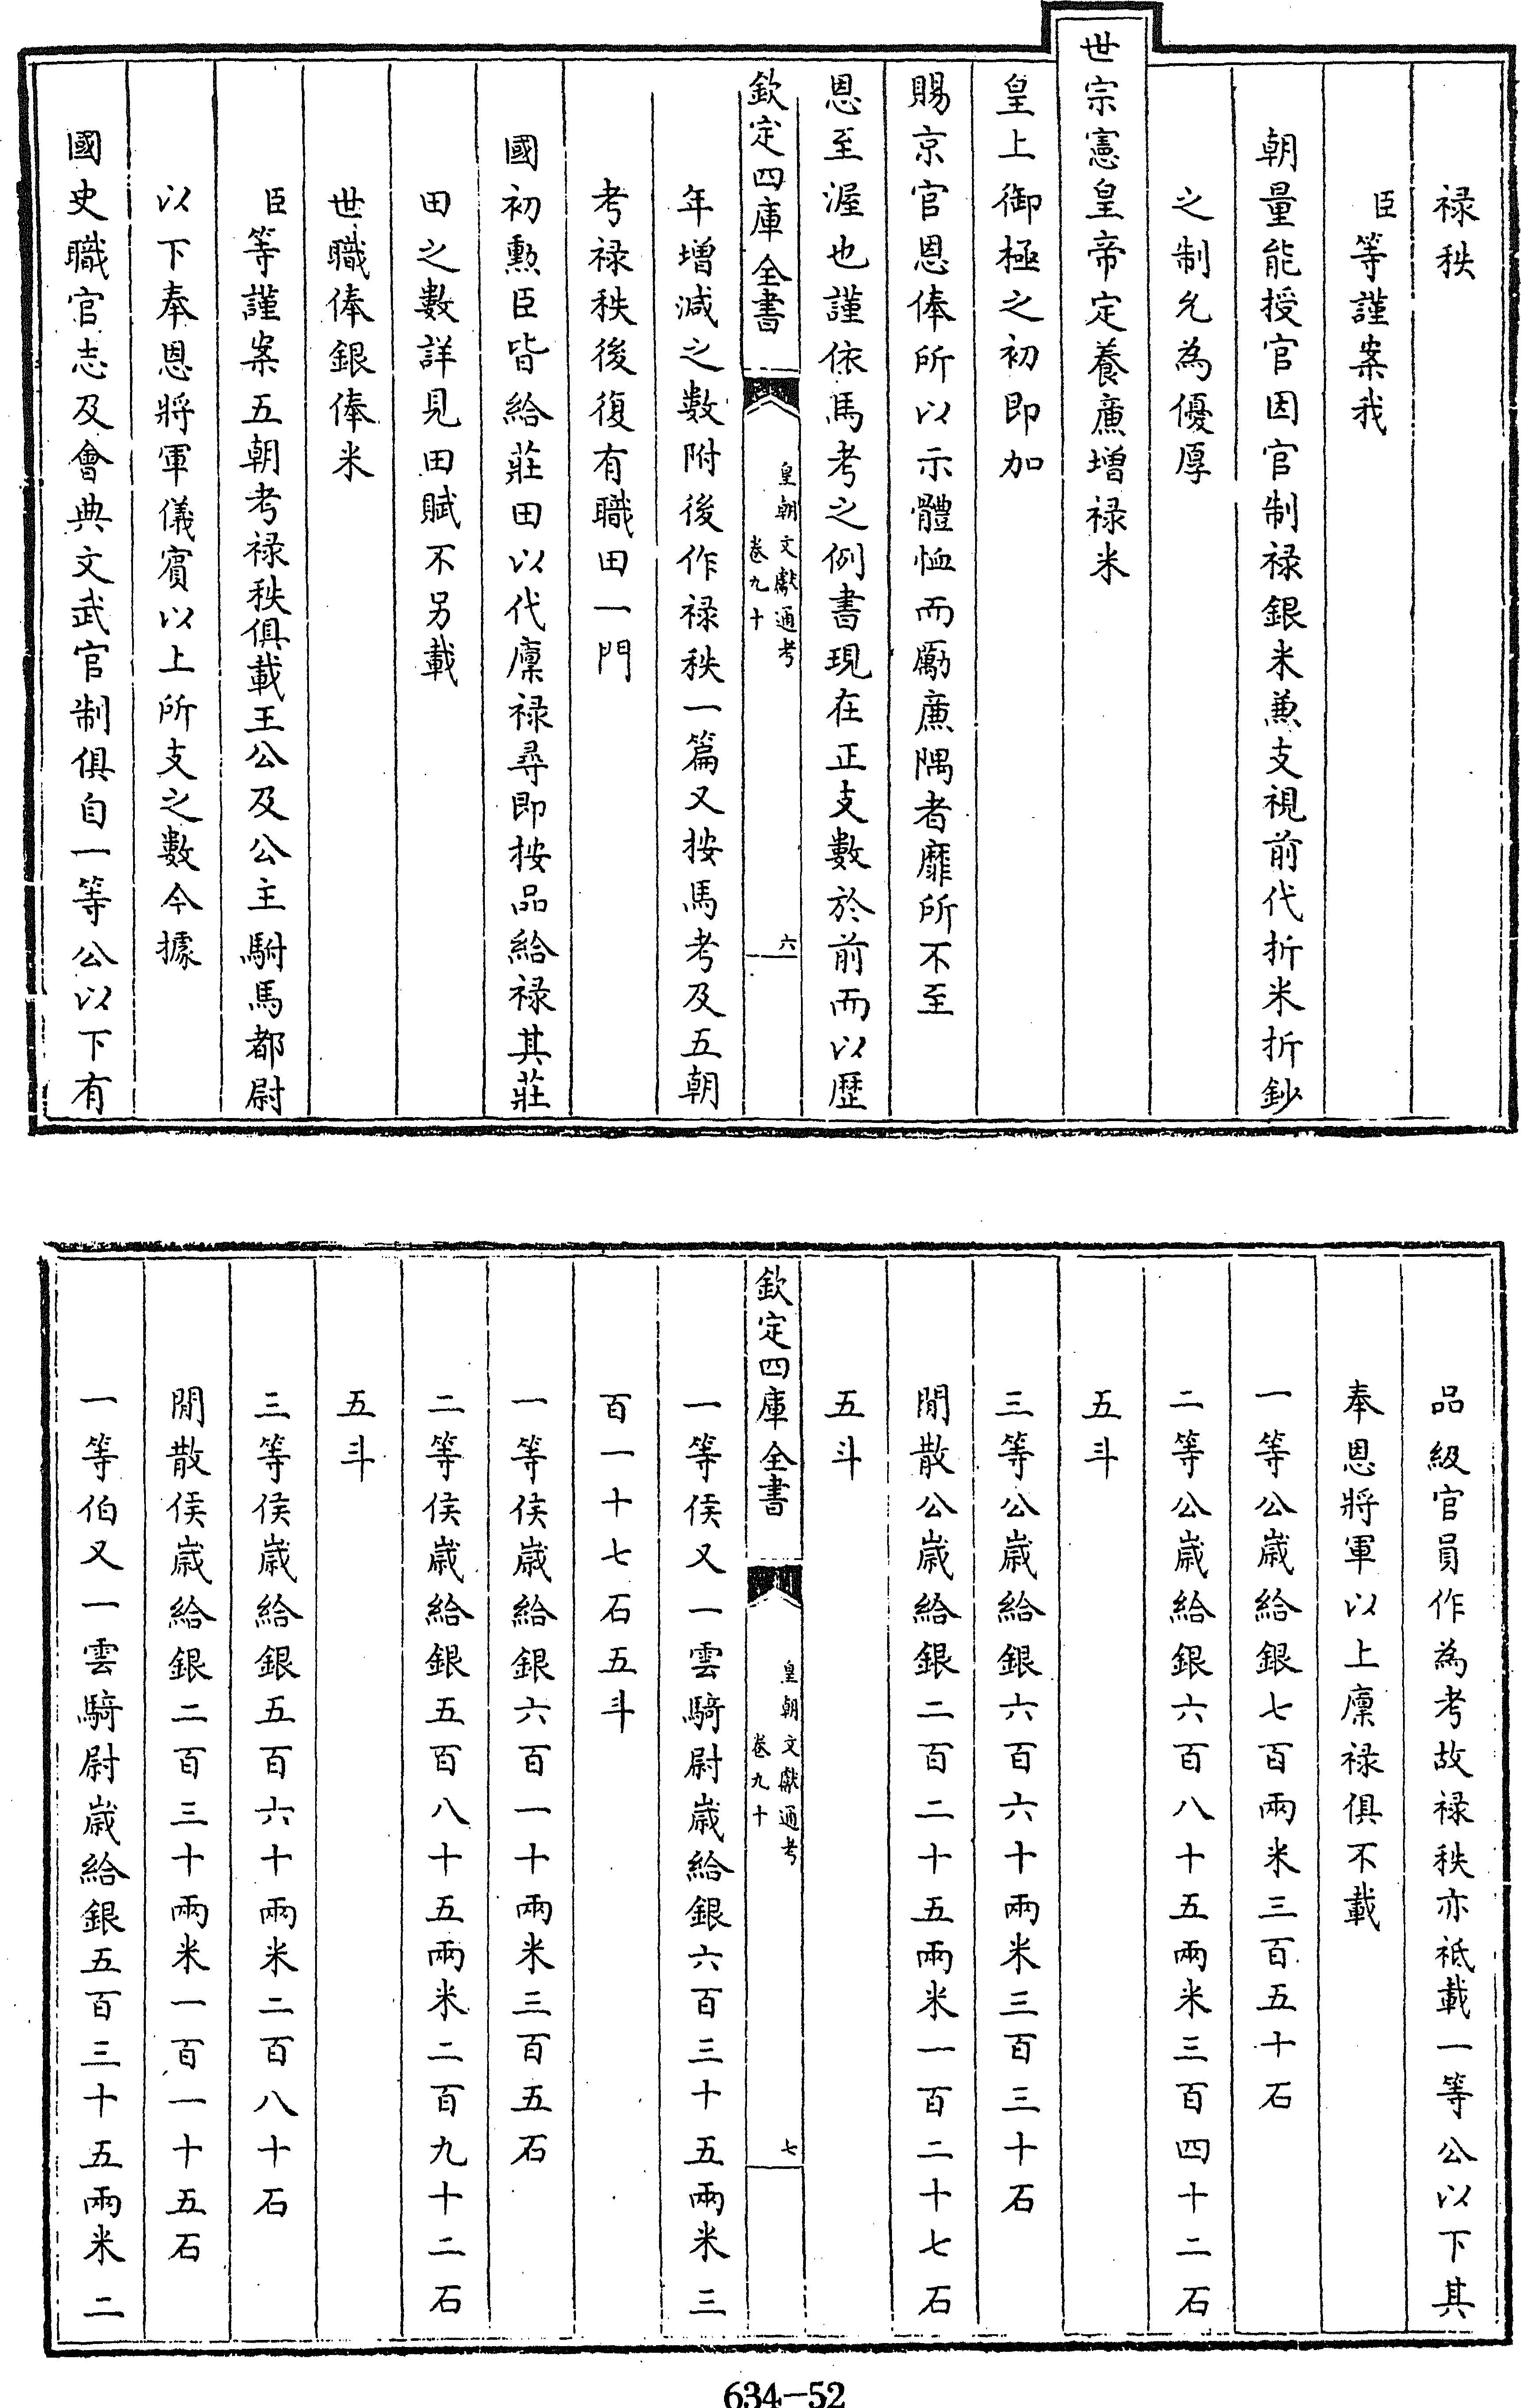 禄秩
臣等謹案我
朝量能授官因官制禄銀米兼支視前代折米折鈔
之制允為優厚
世宗憲皇帝定養廉增禄米
皇上御極之初即加
賜京官恩俸所以示體恤而勵廉隅者靡所不至
恩至渥也謹依馬考之例書現在正支數於前而以歴
欽定四庫全書
皇朝文獻通考
卷九十
六
年增減之數附後作禄秩一篇又按馬考及五朝
考禄秩後復有職田一門
國初勲臣皆給莊田以代廩禄尋即按品給禄其莊
田之數詳見田賦不另載
世職俸銀俸米
臣等謹案五朝考禄秩俱載王公及公主駙馬都尉
以下奉恩將軍儀賓以上所支之數今據
國史職官志及會典文武官制俱自一等公以下有
品級官員作為考故禄秩亦祗載一等公以下其
奉恩將軍以上廩禄俱不載
一等公嵗給銀七百兩米三百五十石
二等公嵗給銀六百八十五兩米三百四十二石
五斗
三等公嵗給銀六百六十兩米三百三十石
閒散公嵗給銀二百二十五兩米一百二十七石
五斗
欽定四庫全書
皇朝文獻通考
卷九十
七
一等侯又一雲騎尉嵗給銀六百三十五兩米三
百一十七石五斗
一等侯嵗給銀六百一十兩米三百五石
二等侯嵗給銀五百八十五兩米二百九十二石
五斗
三等侯嵗給銀五百六十兩米二百八十石
閒散侯嵗給銀二百三十兩米一百一十五石
一等伯又一雲騎尉嵗給銀五百三十五兩米二
634-52